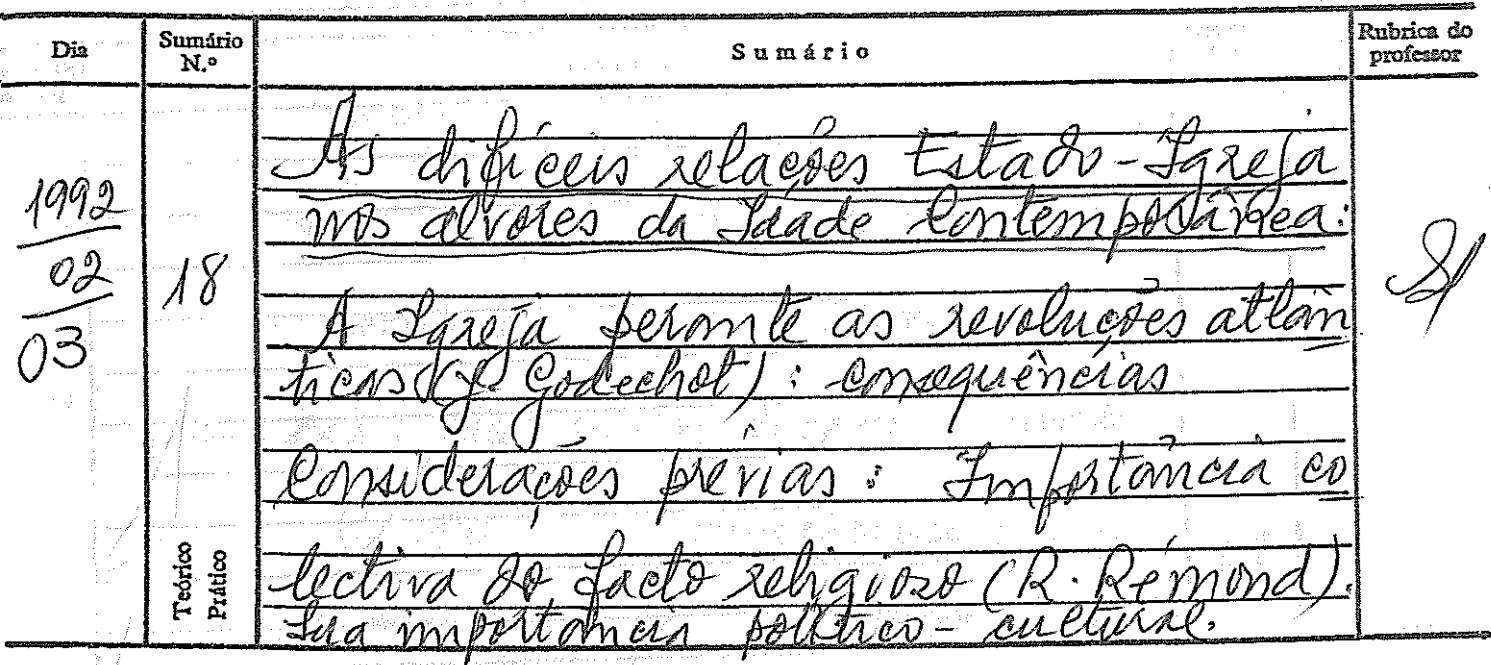 Dia
Sumário
N.º
Sumário
Rubrica do
professor
1992
02
03
18
As difíceis relações Estado-Igreja
nos alvores da Idade Contemporânea:
A Igreja perante as revoluções atlân
ticas (J. Godechot): consequências
Considerações prévias: Importância co
lectiva do facto religioso (R. Rémond).
Sua importância político-cultural.
Teórico
Prático